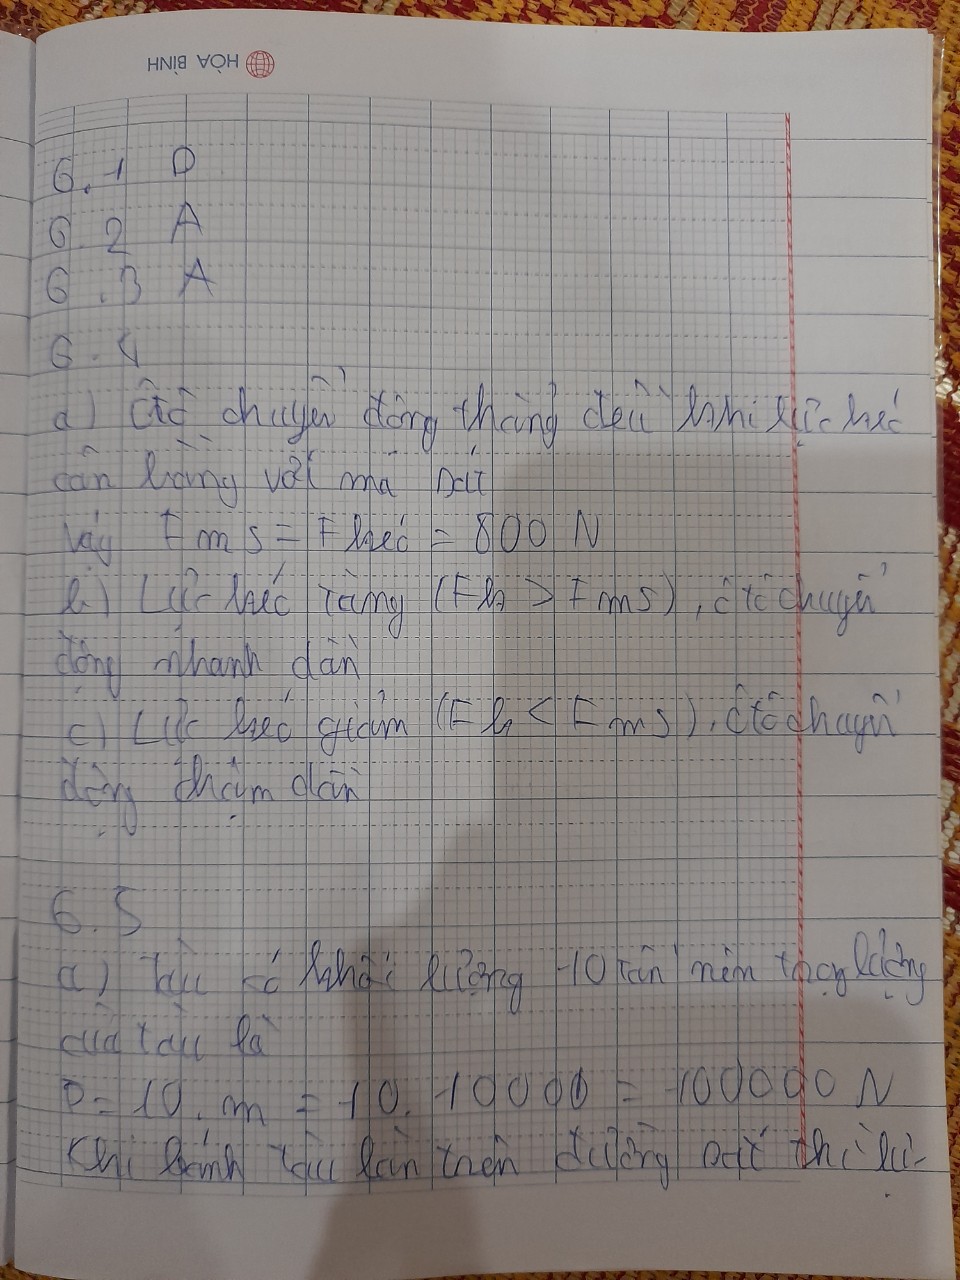 HÒA BÌNH
6.1 D
6.2 A
6.3 A
6.4
a) Ôtô chuyển động thẳng đều khi lực kéo
cân bằng với ma sát
Vậy Fms = Fkéo = 800 N
b) Lực kéo tăng (Fk > Fms), ôtô chuyển
động nhanh dần
c) Lực kéo giảm (Fk < Fms), ôtô chuyển
động chậm dần
6.5
a) tàu có khối lượng 10 tấn nên trọng lượng
của tàu là
P = 10.m = 10.10000 = 100000 N
Khi bánh tàu lăn trên đường sắt thì lự-